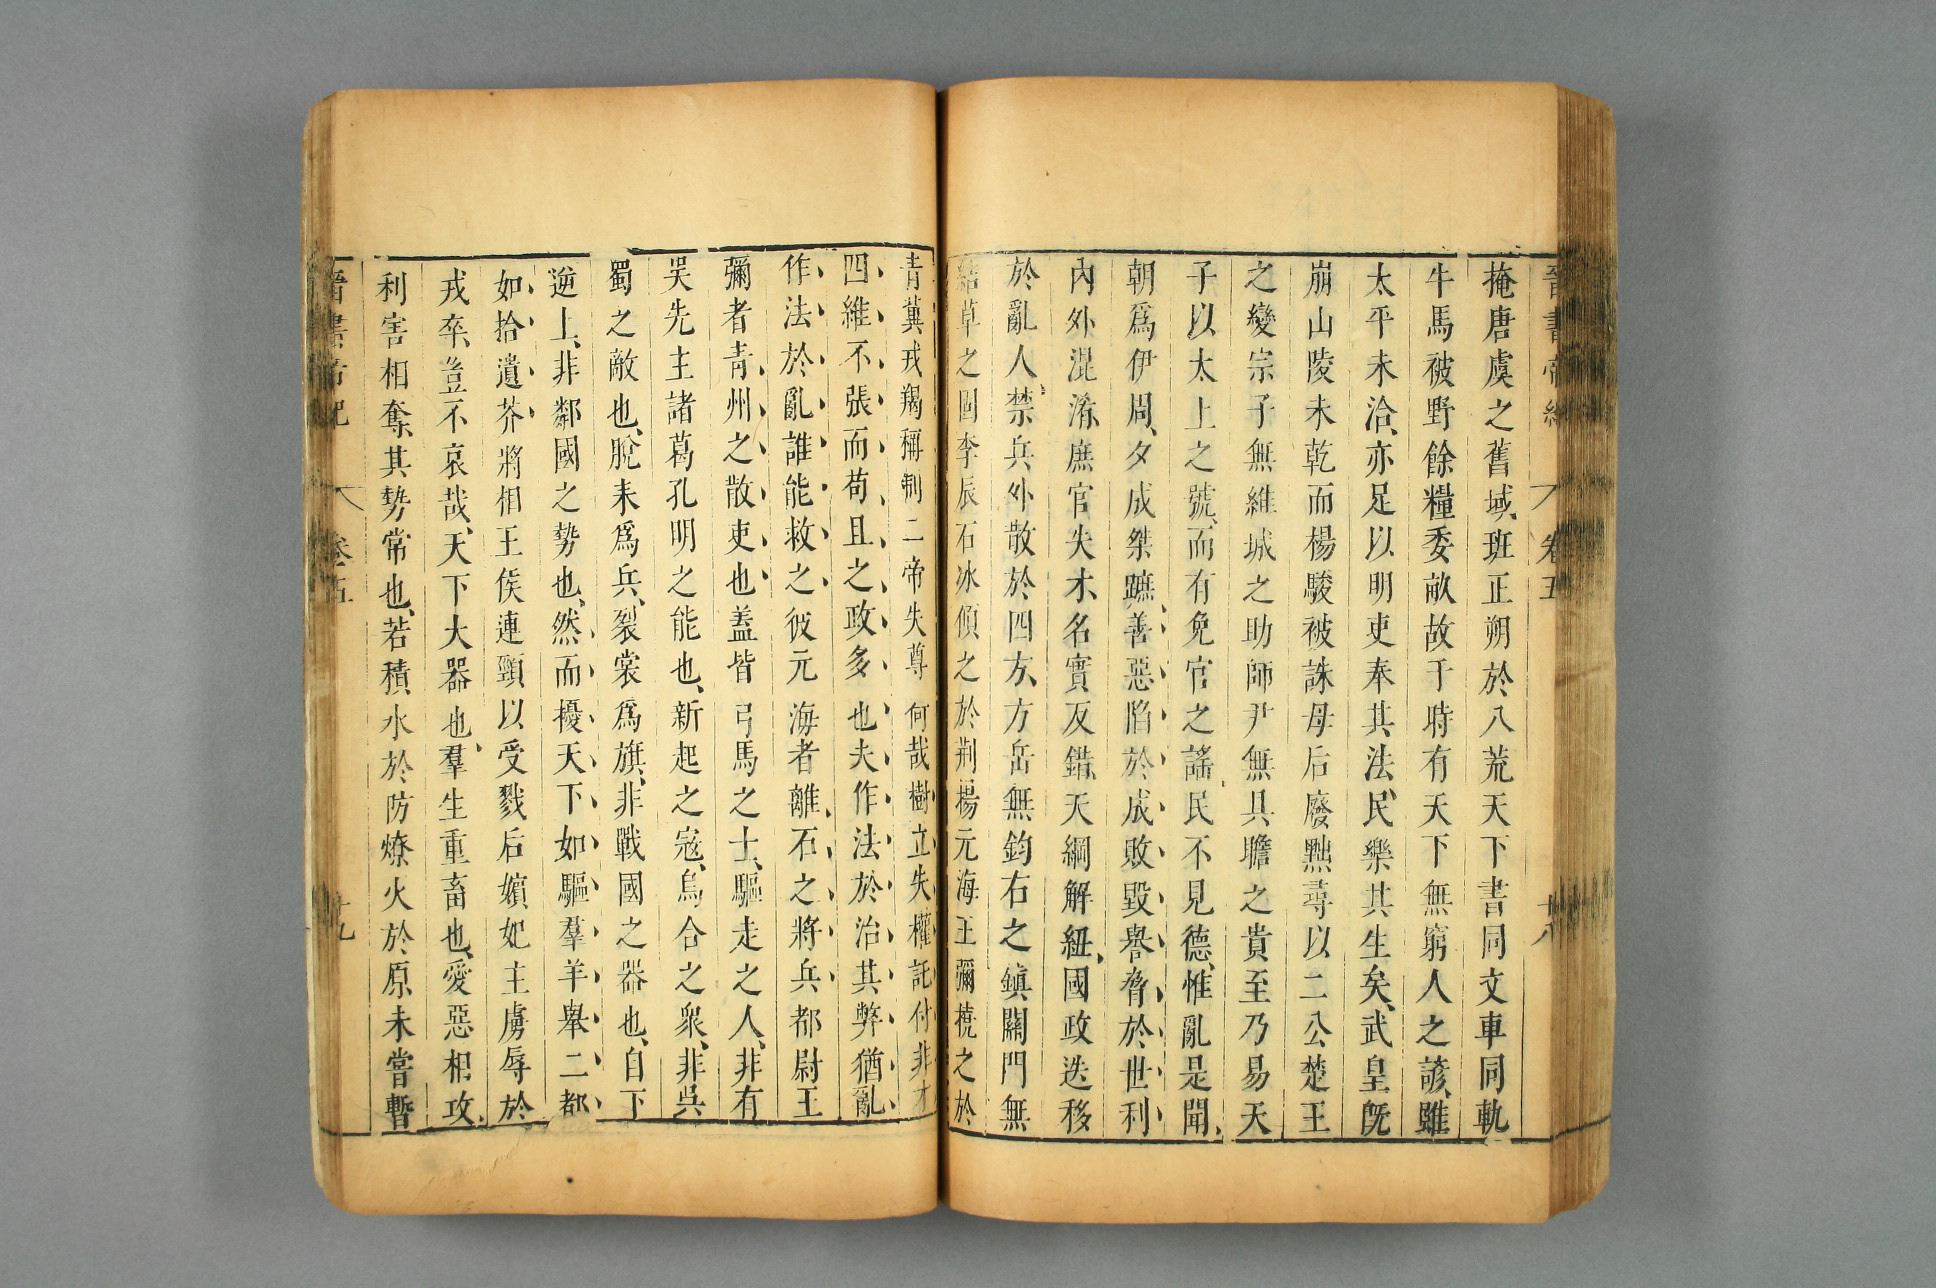 晉書帝紀 卷五 十八
掩唐虞之舊域、班正朔於八荒天下書同文車同軌
牛馬被野餘糧委畝故于時有天下無窮人之諺、雖
太平未洽、亦足以明吏奉其法、民樂其生矣、武皇旣
崩山陵未乾而楊駿被誅母后廢黜尋以二公楚王
之變宗子無維城之助師尹無具瞻之貴至乃易天
子以太上之號、而有免官之謠、民不見德、惟亂是聞、
朝爲伊周、夕成桀蹠、善惡陷於成敗毀譽脅於世利
內外混淆、庶官失才、名實反錯、天綱解紐、國政迭移
於亂人、禁兵外散於四方、方岳無鈞石之鎮關門無
結草之固李辰石冰傾之於荆揚元海王彌撓之於
青冀戎羯稱制二帝失尊何哉樹立失權託付非才
四維不張而苟且之政多也夫作法於治其弊猶亂
作法於亂誰能救之彼元海者離石之將兵都尉王
彌者青州之散吏也蓋皆弓馬之士、驅走之人、非有
吳先主諸葛孔明之能也、新起之寇、烏合之衆、非吳
蜀之敵也、脫耒爲兵、裂裳爲旗、非戰國之器也、自下
逆上、非鄰國之勢也、然而擾天下如驅羣羊舉二都
如拾遺芥將相王侯連頸以受戮后嬪妃主虜辱於
戎卒、豈不哀哉、天下大器也、羣生重畜也、愛惡相攻、
利害相奪、其勢常也、若積水於防燎火於原未嘗暫
晉書帝紀 卷五 十九